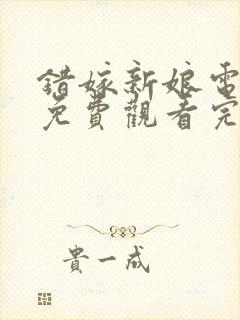 錯嫁新娘電
免費觀看完
貴一成